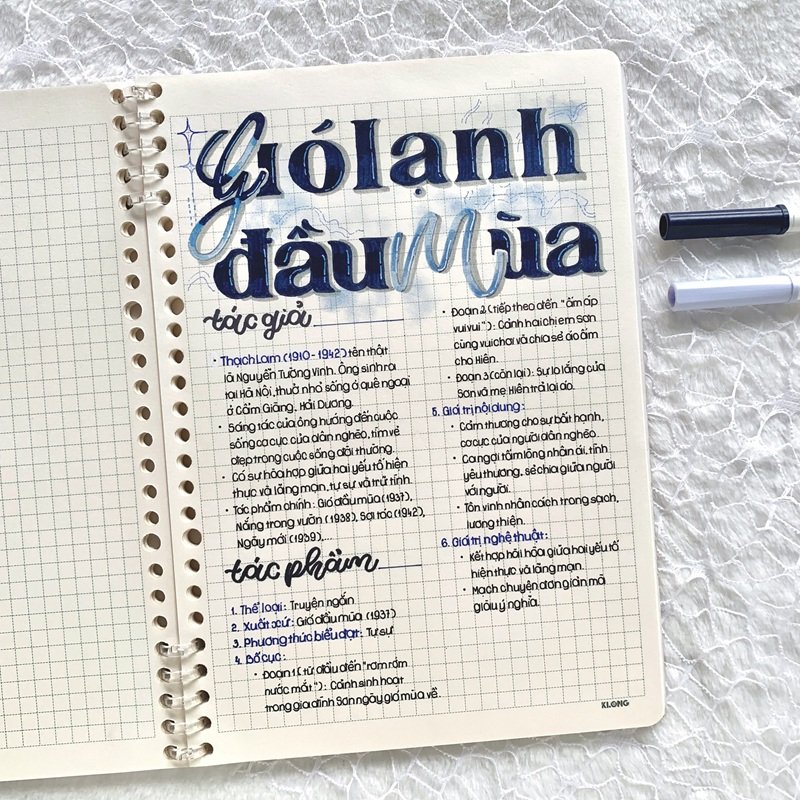 Gió lạnh
đầu Mùa
tác giả
• Thạch Lam (1910 - 1942) tên thật
là Nguyễn Tường Vinh. Ông sinh ra
tại Hà Nội, thuở nhỏ sống ở quê ngoại
ở Cẩm Giàng, Hải Dương.
• Sáng tác của ông hướng đến cuộc
sống cơ cực của dân nghèo, tìm vẻ
đẹp trong cuộc sống đời thường
• Có sự hòa hợp giữa hai yếu tố hiện
thực và lãng mạn, tự sự và trữ tình.
• Tác phẩm chính: Gió đầu mùa (1937),
Nắng trong vườn (1938), Sợi tóc (1942),
Ngày mới (1939),...
tác phẩm
1. Thể loại: Truyện ngắn
2. Xuất xứ: Gió đầu mùa (1937)
3. Phương thức biểu đạt: Tự sự
4. Bố cục:
• Đoạn 1 (từ đầu đến "rơm rớm
nước mắt"): Cảnh sinh hoạt
trong gia đình Sơn ngày gió mùa về.
• Đoạn 2 (tiếp theo đến "ấm áp
vui vui"): Cảnh hai chị em Sơn
cùng vui chơi và chia sẻ áo ấm
cho Hiên.
• Đoạn 3 (còn lại): Sự lo lắng của
Sơn và mẹ Hiên trả lại áo.
5. Giá trị nội dung:
• Cảm thương cho sự bất hạnh,
cơ cực của người dân nghèo.
• Ca ngợi tấm lòng nhân ái, tình
yêu thương, sẻ chia giữa người
với người.
• Tôn vinh nhân cách trong sạch,
lương thiện.
6. Giá trị nghệ thuật:
• Kết hợp hài hòa giữa hai yếu tố
hiện thực và lãng mạn.
• Mạch chuyện đơn giản mà
giàu ý nghĩa.
KLONG